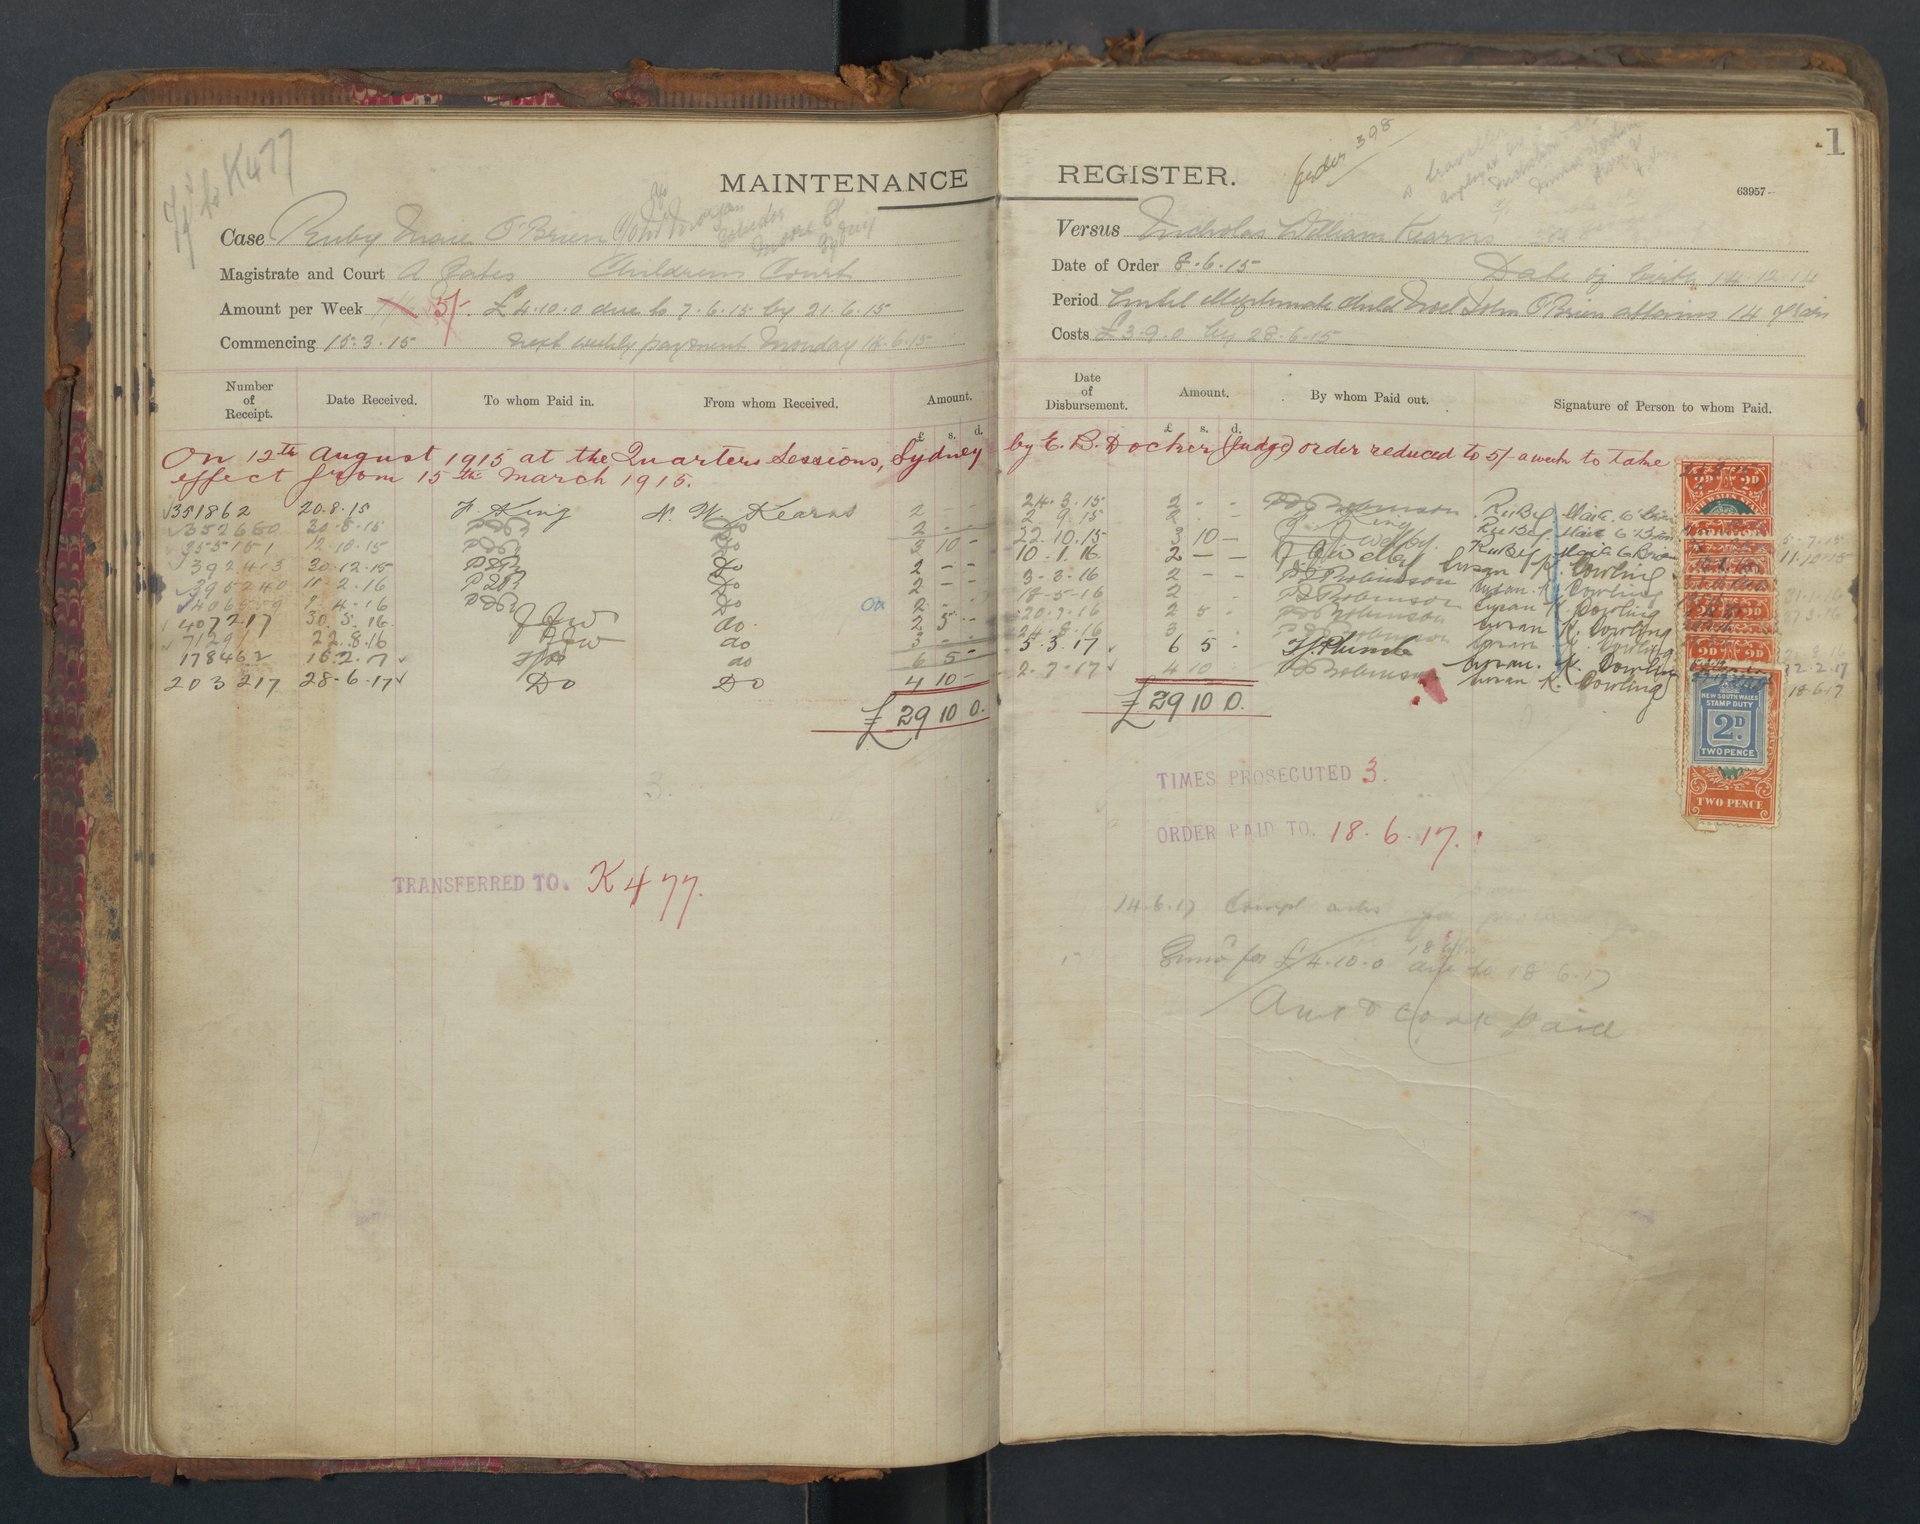 Tfd to K477
MAINTENANCE
Case Ruby Marie O'Brien
John Morgan
Solicitor
Moore St
Sydney
Magistrate and Court A Gates Childrens Court
Amount per Week 5/- £4.10.0 due to 7.6.15 by 21.6.15
Commencing 15.3.15 next weekly payment Monday 14.6.15
Number of Receipt. Date Received. To whom Paid in. From whom Received. Amount.
£ s. d.
On 12th August 1915 at the Quarter Sessions, Sydney
effect from 15th March 1915.
351862 20.8.15 F King N. W. Kearns 2 - -
352680 30.8.15 PDR Do 2 - -
355151 12.10.15 PDR Do 3 10 -
392413 30.12.15 PDR Do 2 - -
395240 11.2.16 PDR Do 2 - -
406559 4.16 PDR Do 2 - -
407217 30.5.16 JJW do. 2 5 -
71291 22.8.16 JJW do 3 - -
178462 16.2.17 do 6 5 -
203217 28-6.17 Do Do 4 10 -
£ 29 10 0.
3.
TRANSFERRED TO. K477.
REGISTER.
folio 398
1
63957
Versus Nicholas William Kearns
Date of Order 8.6.15 Date of birth 14.12.14
Period Until illegitimate child Noel John O'Brien attains 14 years
Costs £3.9.0 by 28.6.15
Date of Disbursement. Amount. By whom Paid out. Signature of Person to whom Paid.
£ s. d.
by E. B. Docker (Judge) order reduced to 5/- a week to take
24.3.15 2 - - P D Robinson Ruby Marie O'Brien
2 9.15 2 - - F King Ruby Marie O'Brien 5-7-15
22.10.15 3 10 - J. J. Welby. Ruby Marie O'Brien 11-10-15
10.1.16 2 - - J J Welby Susan K. Dowling
3-3-16 2 - - P D Robinson Susan K. Dowling
18-5-16 2 - - P D Robinson Susan K. Dowling
20.7.16 2 5 - P D Robinson Susan K. Dowling
24.8.16 3 - - P D Robinson Susan K. Dowling
5.3.17 6 5 - Susan. K. Dowling 22-2-17
2-7-17 4 10 - P D Robinson Susan K. Dowling 18 6 17
£ 29 10 0.
NEW SOUTH WALES
STAMP DUTY
2D.
TWO PENCE
TWO PENCE
TIMES PROSECUTED 3.
ORDER PAID TO. 18.6.17.
14.6.17 Compl asks for proceedings
" Summs for £4.10.0 due to 18 6.17
Amt & costs paid